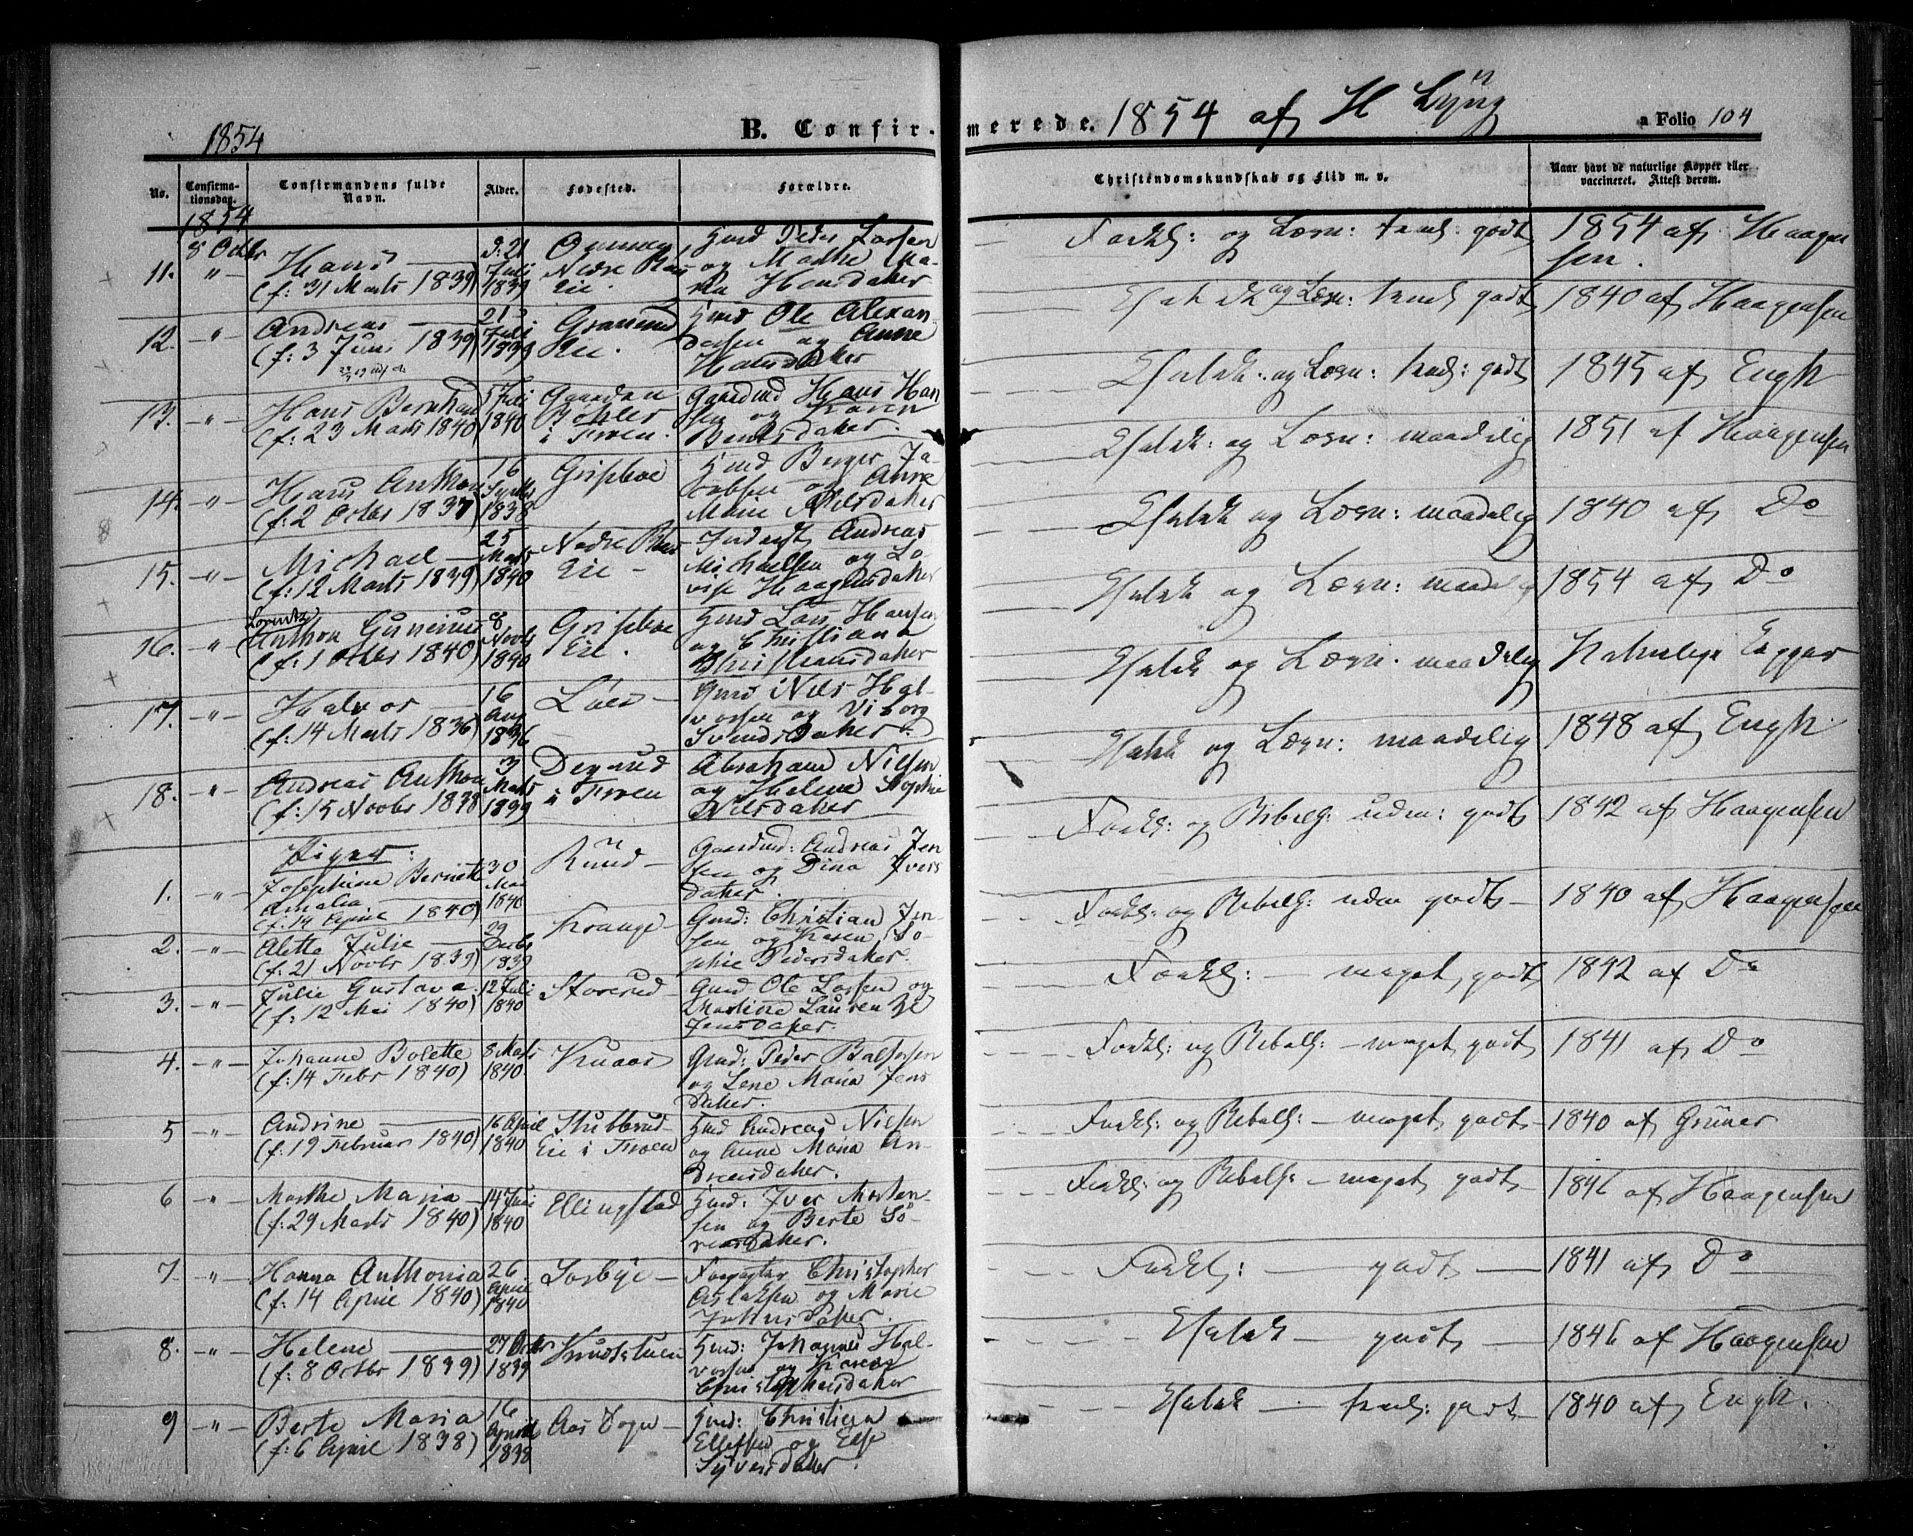 1854
B. Confirmerede. 1854 af H Lyng
a Folio 104
No.
Confirmationsdag.
Confirmandens fulde Navn.
Alder.
Fødested.
Forældre.
Christendomskundskab og Flid m. v.
Naar havt de naturlige Kopper eller vaccineret. Attest derom.
1854
8 Octbr
11. -"- Hans
(f: 31 Marts 1839)
21 Juli 1839
Nedre
Eie.
Gmd Peder Larsen
og Marthe Ma-
ria Hansdatter
godt
1854 af Haagen
sen.
12. -"- Andreas
(f: 3 Juni 1839)
Juli 1839
Eie.
Gmd Ole Alexan
dersen og Anne
Hansdatter
godt
1840 af Haagensen
13. -"- Hans Bernhard
(f: 23 Marts 1840)
5 Juli 1840
Gaarden
i Froen.
Gaardmd Hans Han
sen og Karen
Berntsdatter.
godt
1845 af Engh
14. -"- Hans Anthon
(f: 2 Octbr 1837)
16 1838
Gmd Berger Ja-
cobsen og Anne
Marie Nilsdatter
og Læsn: maadelig
1851 af Haagensen
15. -"- Michael
(f: 12 Marts 1839)
25 Marts 1840
Nedre
Eie -
Inderst Andreas
Michelsen og Lo-
vise Haagensdatter
og Læsn: maadelig
1840 af Do
16. " Lorentz
Anthon Gunerius
(f: 1 Octbr 1840)
8 Novbr 1840
Eie.
Gmd Lars Hansen
og Christiana
Christiansdatter
og Læsn: maadelig
1854 af Do
17. -"- Halvor
(f: 14 Marts 1836)
16 Aug 1836
Gmd Nils Hal-
vorsen og Viborg
Svendsdatter
og Læsn: maadelig
Naturlige Kopper
18. -"- Andreas Anthon
(f: 15 Novbr 1838)
3 Marts 1839
Degrud
i Froen
Abraham Nilsen
og Helene Sophie
Nilsdatter
og Læsn: maadelig
1848 af Engh
Piger:
1. -"- Josephine Bernette
Amalia
(f: 14 April 1840)
30 Mai 1840
Ruud
Gaardmd: Andreas Jen
sen og Dina Ivers
datter
Forkl: og Bibelh: uden: godt
1842 af Haagensen
2. -"- Alette Julie
(f: 21 Novbr 1839)
29 Decbr 1839
Krange
Gmd: Christian Jen-
sen og Karen So-
phie Pedersdatter.
Forkl: og Bibelh: uden godt
1840 af Haagensen
3. -"- Julie Gustava
(f: 12 Mai 1840)
12 Juli 1840
Storerud
Gmd Ole Larsen og
Martine Laurentze
Jensdatter.
Forkl: - meget godt
1842 af Do
4. -"- Johanne Bolette
(f: 14 Febr 1840)
8 Marts 1840
Knaar
Gmd: Peder
og Lene Maria Jens
datter.
Forkl: og Bibelh: - meget godt
1841 af Do
5 -"- Andrine
(f: 19 Februar 1840)
16 April 1840
Stubberud
Eie i Froen
Gmd Andreas Nilsen
og Anne Maria An-
dreasdatter.
Forkl: og Bibelh: - meget godt
1840 af Grüner
6 -"- Marthe Maria
(f: 29 Marts 1840)
14 Juni 1840
Ellingstad
Gmd: Iver Morten-
sen og Berte Sö-
rensdatter.
Forkl: og Bibelh: - meget godt
1846 af Haagensen
7 -"- Hanna Anthonia
(f: 14 April 1840)
26 April 1840
Forpagter Christopher
Aslaksen og Marie
Johnsdatter
Forkl: - godt
1841 af Do
8. -"- Helene
(f: 8 Octbr 1839)
27 Octbr 1839
Knudstuen
Gmd: Johannes Hal-
vorsen og Karen
Christophersdatter
godt
1846 af Haagensen
9 -"- Berte Maria
(f: 6 April 1838)
16 April 1838
Aas
Gmd: Christian
Ellefsen og Else
Syversdatter
godt
1840 af Engh.